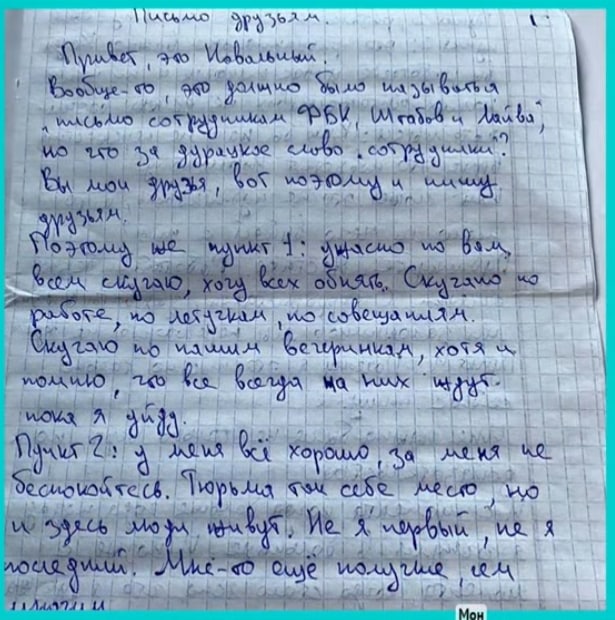 Письмо друзьям.
1.
Привет, это Навальный.
Вообще-то, это должно было называться
„письмо сотрудникам ФБК, Штабов и Лайва",
но что за дурацкое слово „сотрудники"?
Вы мои друзья, вот поэтому и пишу
друзьям.
Поэтому же пункт 1: ужасно по вам
всем скучаю, хочу всех обнять. Скучаю по
работе, по летучкам, по совещаниям.
Скучаю по нашим вечеринкам, хотя и
помню, что все всегда на них ждут
пока я уйду.
Пункт 2: у меня всё хорошо, за меня не
беспокойтесь. Тюрьма так себе место, но
и здесь люди живут. Не я первый, не я
последний. Мне-то ещё получше, чем
многим
Мон